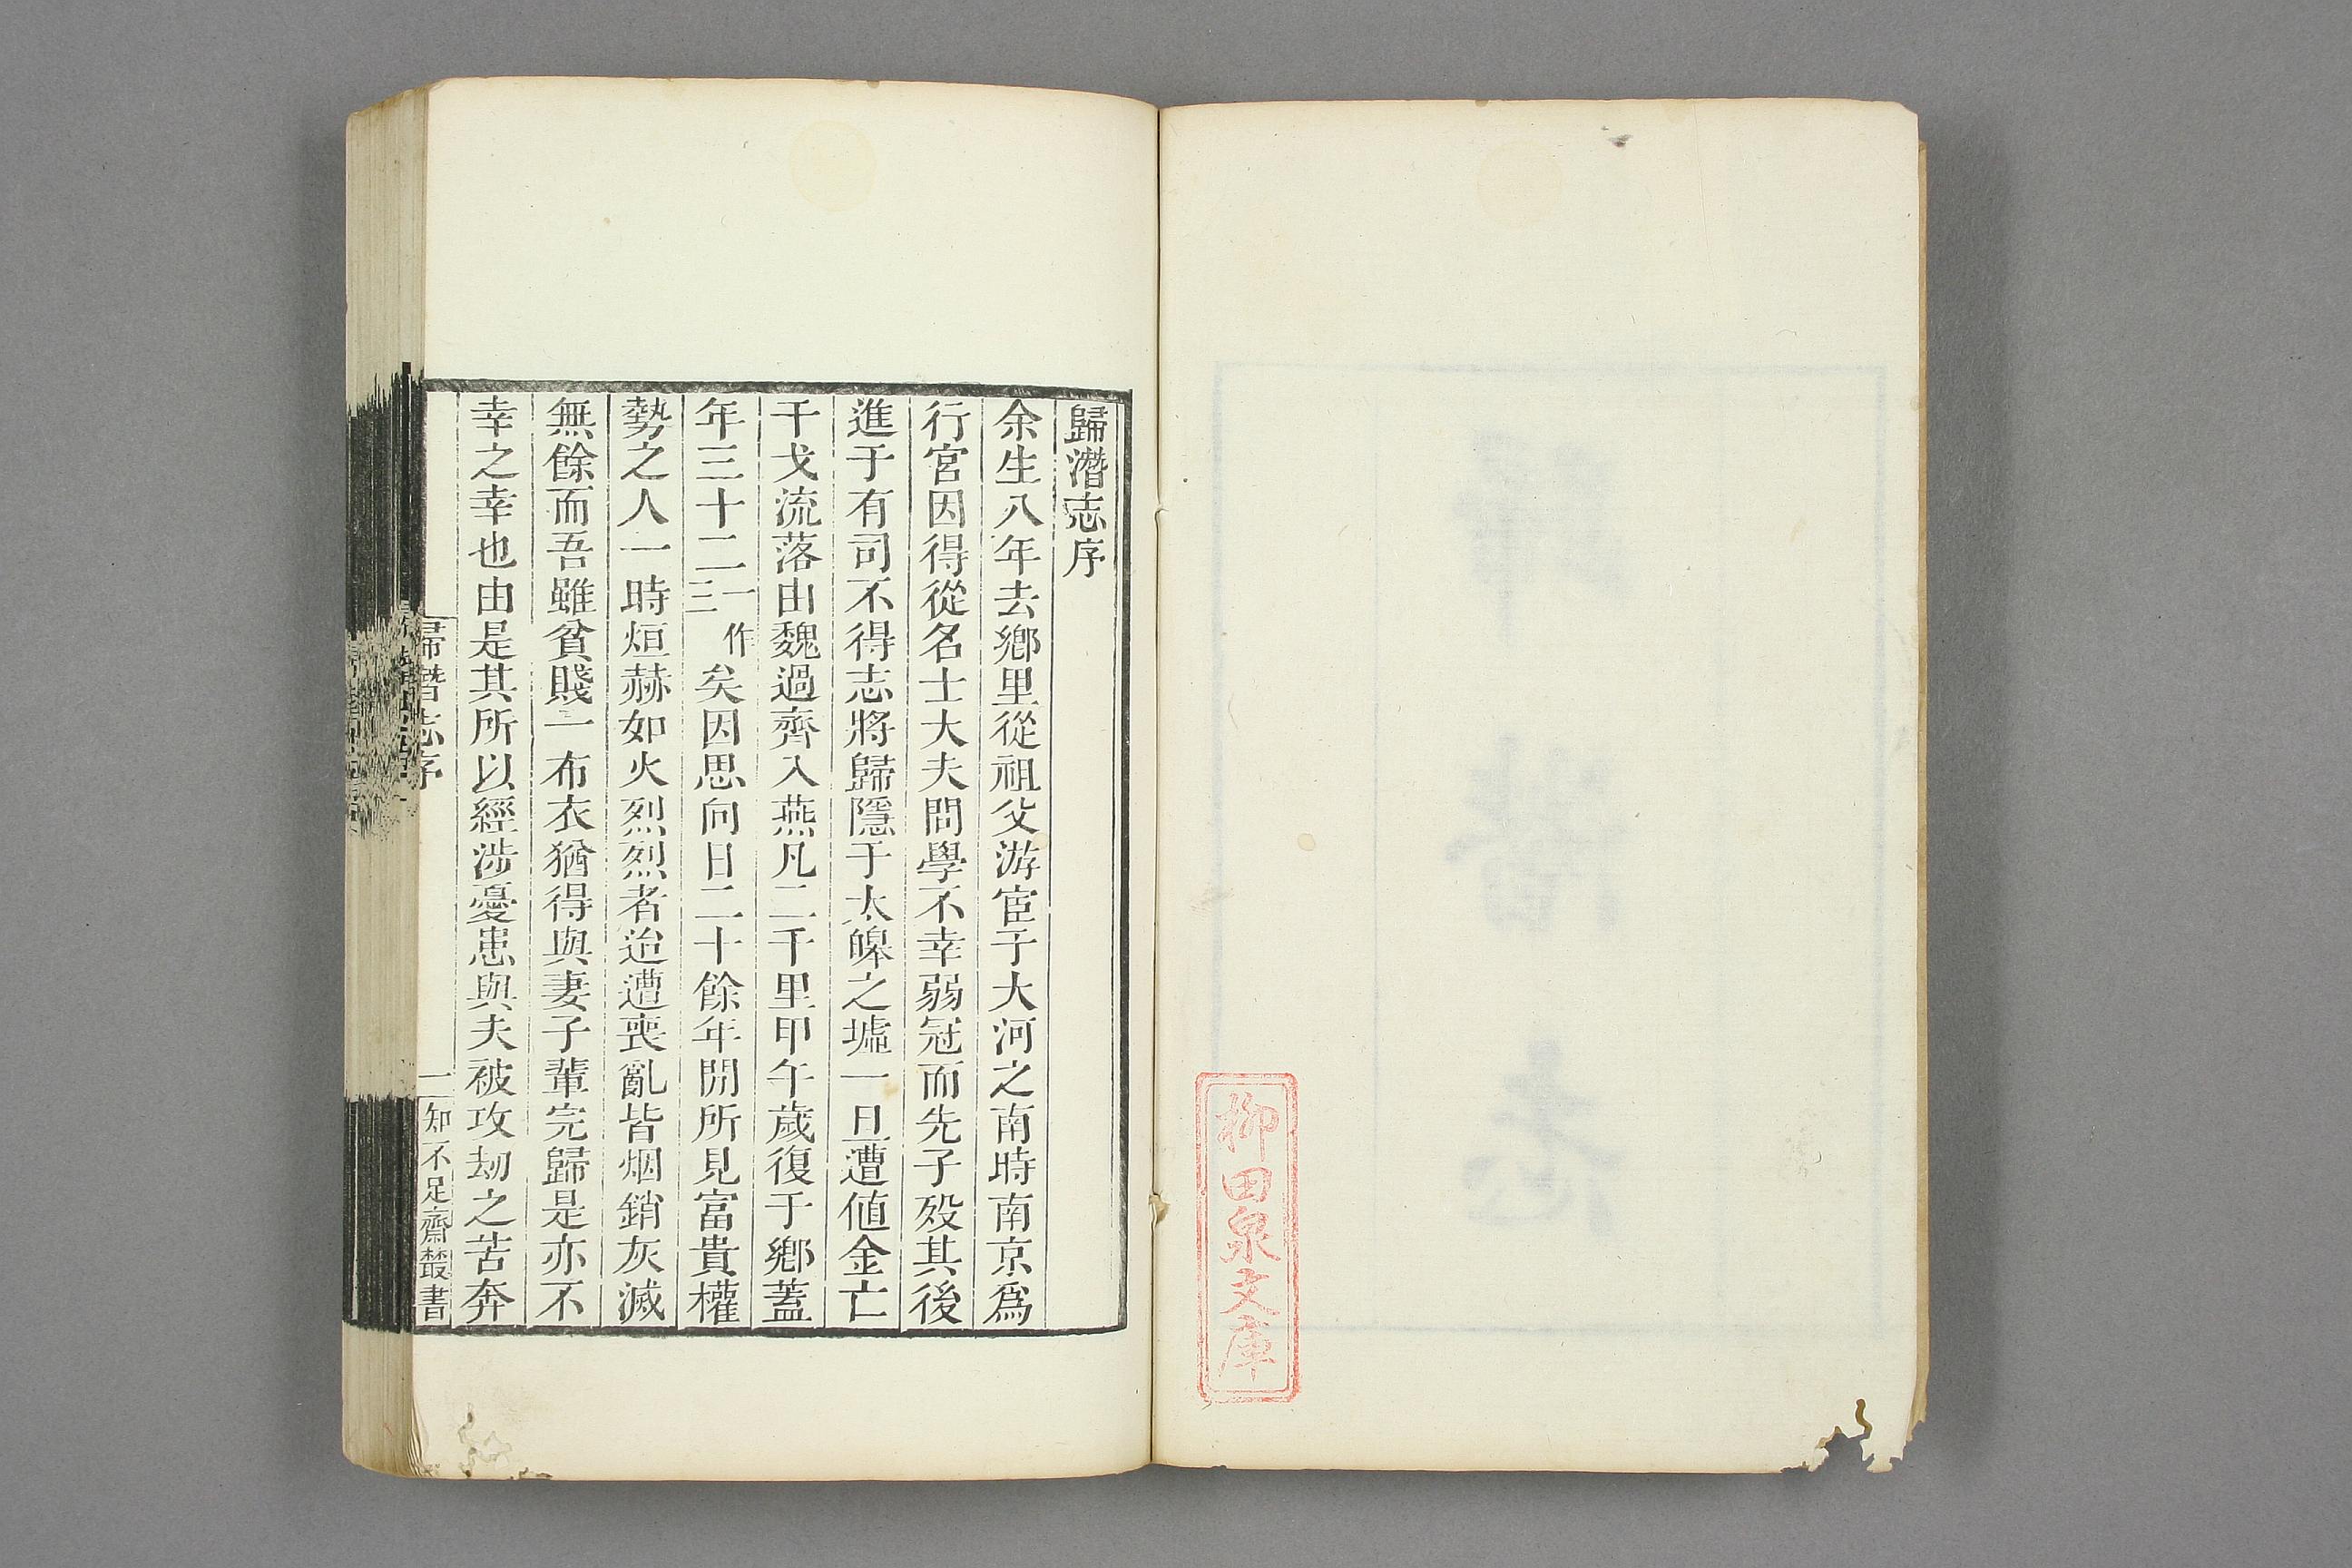 柳田泉文庫
歸潛志序
余生八年去鄉里從祖父游宦于大河之南時南京爲
行宮因得從名士大夫問學不幸弱冠而先子歿其後
進于有司不得志將歸隱于太皞之墟一旦遭値金亡
干戈流落由魏過齊入燕凡二千里甲午歲復于鄉蓋
年三十二一作三矣因思向日二十餘年閒所見富貴權
勢之人一時烜赫如火烈烈者迨遭喪亂皆烟銷灰滅
無餘而吾雖貧賤一布衣猶得與妻子輩完歸是亦不
幸之幸也由是其所以經涉憂患與夫被攻刼之苦奔
歸潛志序 一 知不足齋叢書